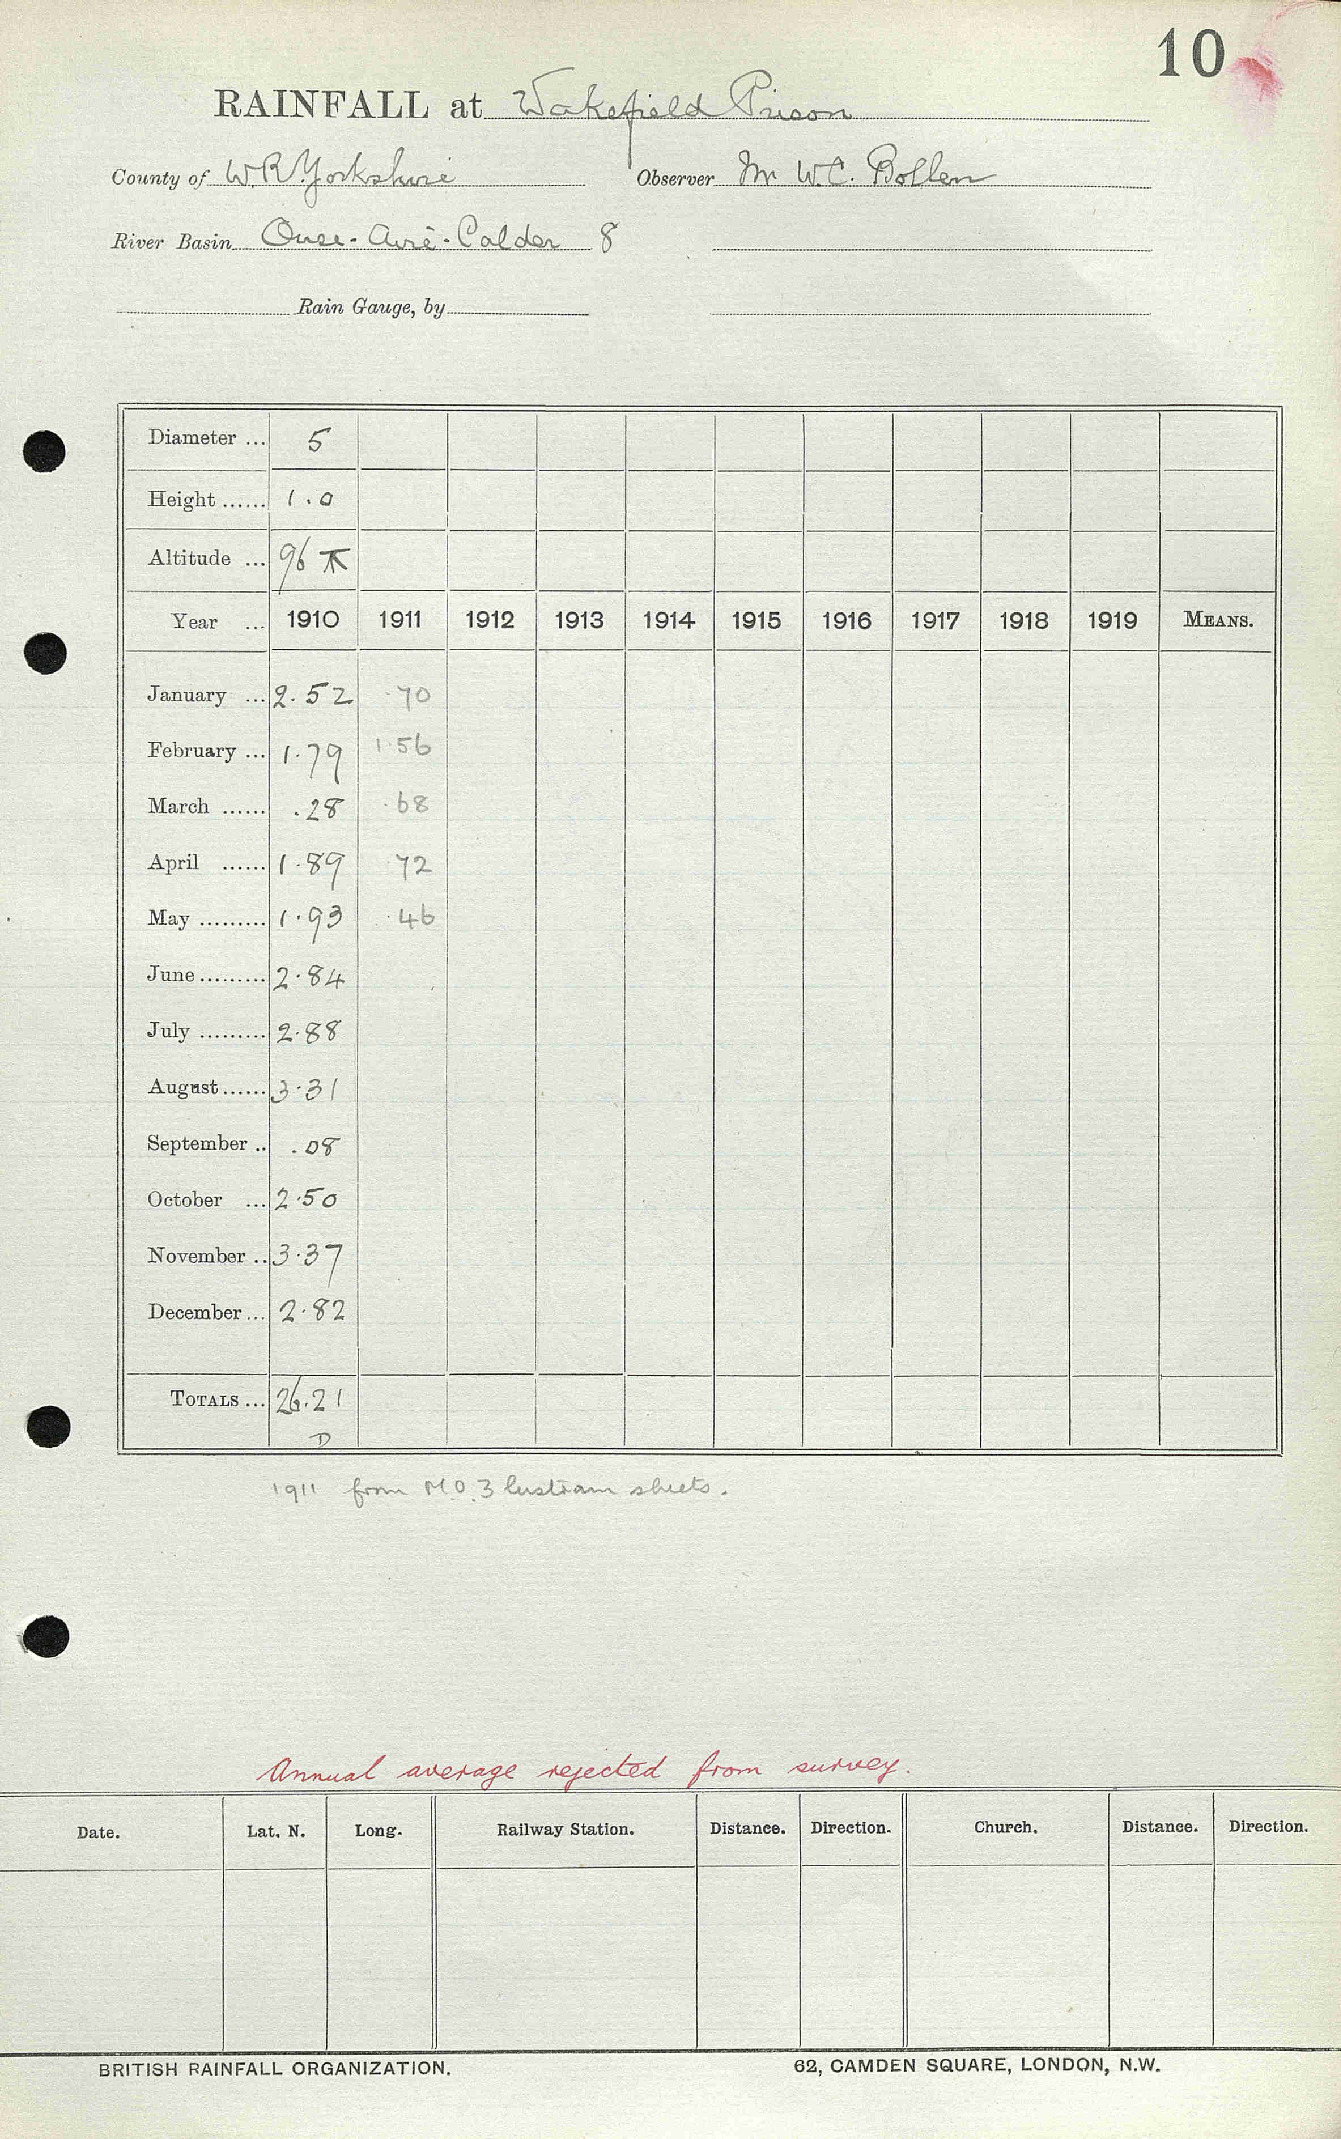 10
RAINFALL at Wakefield Prison
County of W.R. Yorkshire Observer Mr W.C. Bollen
River Basin Ouse-Aire-Calder 8
Rain Gauge, by
Diameter ... 5
Height ...... 1.0
Altitude ... 96
Year ... 1910 1911 1912 1913 1914 1915 1916 1917 1918 1919 MEANS.
January ... 2.52 .70
February ... 1.79 1.56
March ...... .28 .68
April ...... 1.89 .72
May ......... 1.93 .46
June ......... 2.84
July ......... 2.88
August ...... 3.31
September .. .08
October ... 2.50
November .. 3.37
December ... 2.82
TOTALS ... 26.21
D
1911 from M.O. 3 lustrum sheets.
Annual average rejected from survey.
Date. Lat. N. Long. Railway Station. Distance. Direction. Church. Distance. Direction.
BRITISH RAINFALL ORGANIZATION. 62, CAMDEN SQUARE, LONDON, N.W.